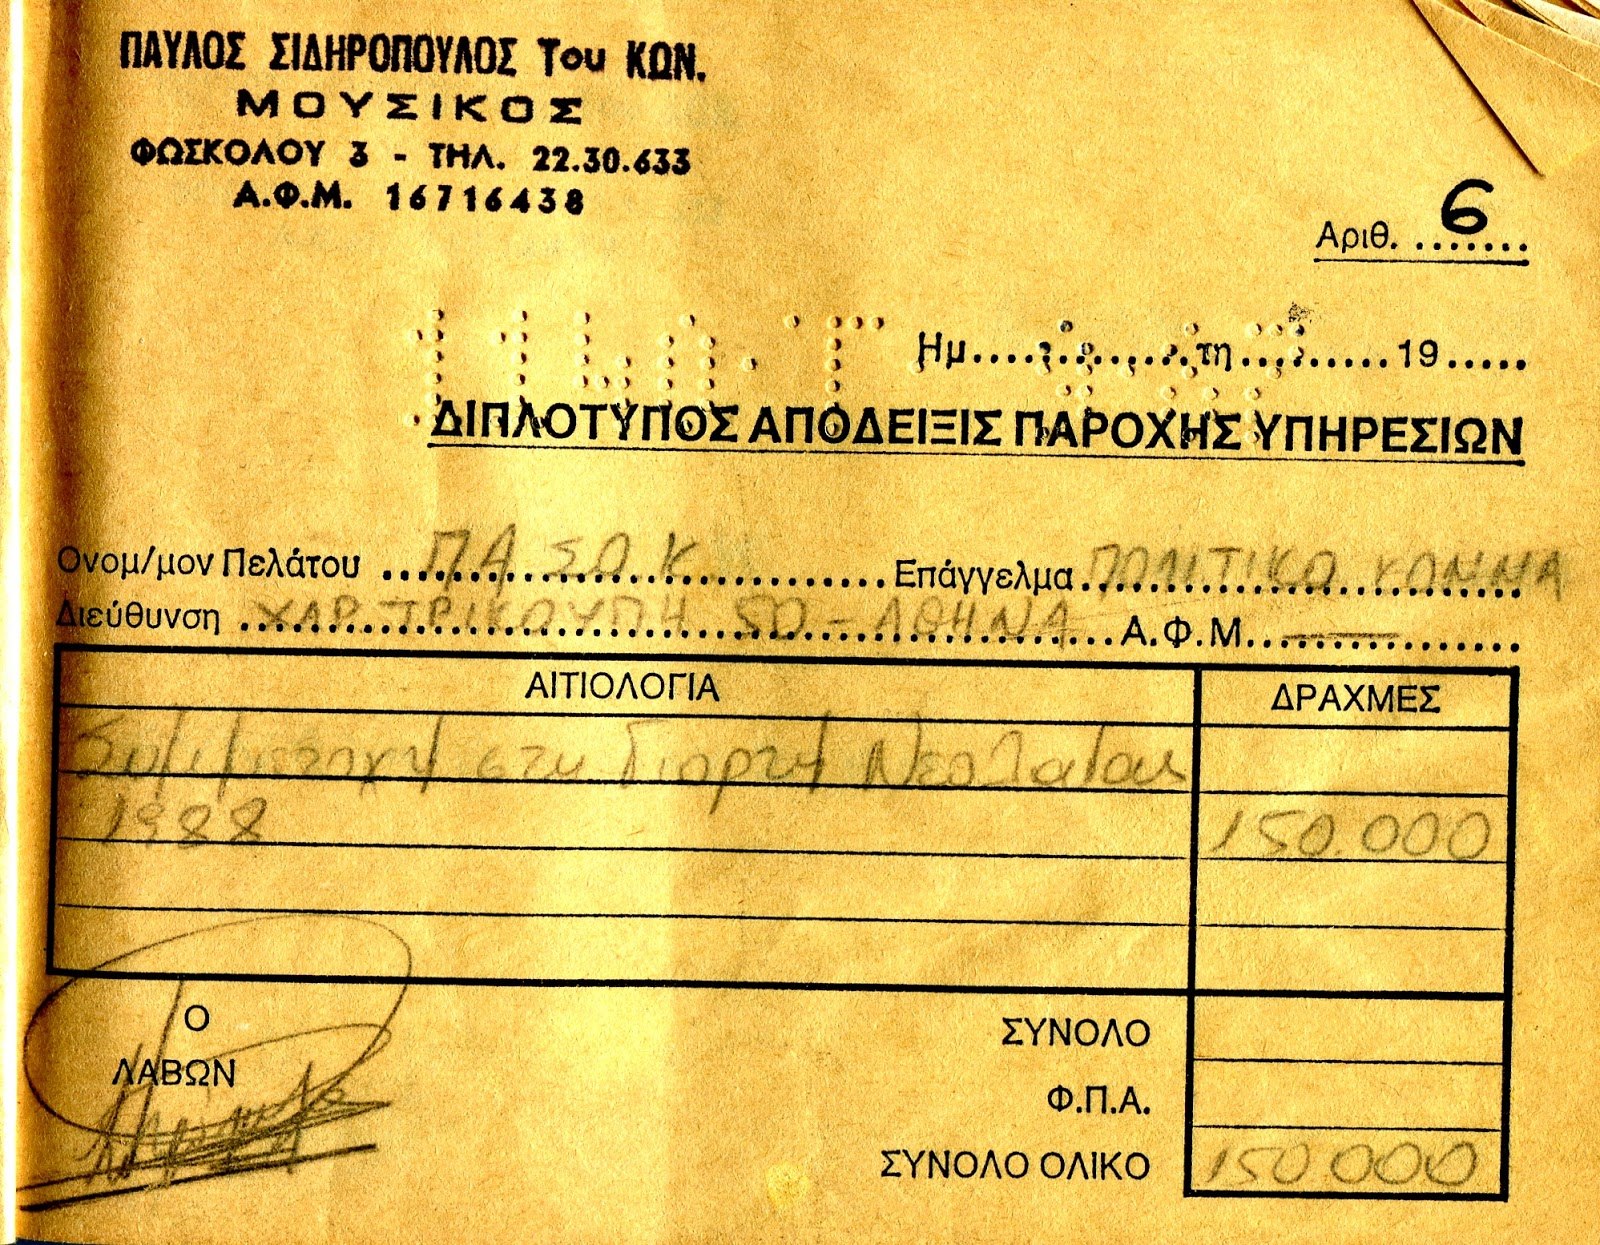 ΠΑΥΛΟΣ ΣΙΔΗΡΟΠΟΥΛΟΣ Του ΚΩΝ.
ΜΟΥΣΙΚΟΣ
ΦΩΣΚΟΛΟΥ 3 - ΤΗΛ. 22.30.633
Α.Φ.Μ. 16716438
Αριθ. 6
Ημ. τη 19
ΔΙΠΛΟΤΥΠΟΣ ΑΠΟΔΕΙΞΙΣ ΠΑΡΟΧΗΣ ΥΠΗΡΕΣΙΩΝ
Ονομ/μον Πελάτου ΠΑΣΟΚ Επάγγελμα ΠΟΛΙΤΙΚΟ ΚΟΜΜΑ
Διεύθυνση ΧΑΡ. ΤΡΙΚΟΥΠΗ 50 - ΑΘΗΝΑ Α.Φ.Μ. —
ΑΙΤΙΟΛΟΓΙΑ ΔΡΑΧΜΕΣ
Συμμετοχή στη Γιορτή Νεολαίας
1988 150.000
Ο
ΛΑΒΩΝ
ΣΥΝΟΛΟ
Φ.Π.Α.
ΣΥΝΟΛΟ ΟΛΙΚΟ 150.000